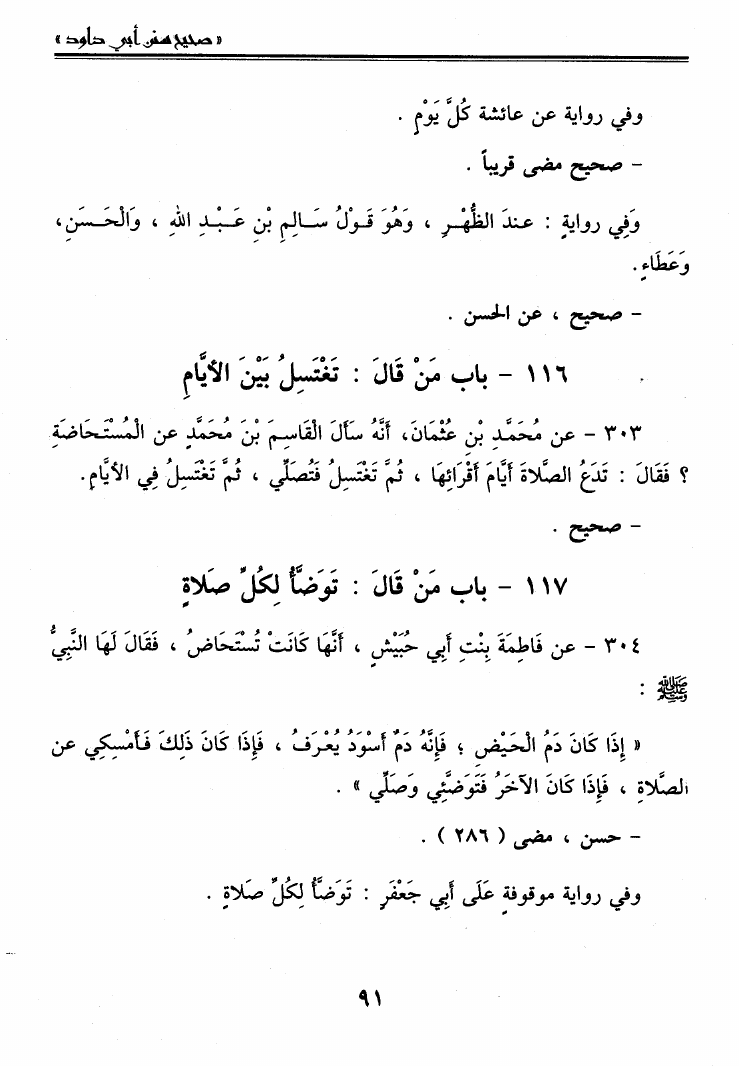 « صحيح سنن أبي داود »
وفي رواية عن عائشة كُلَّ يَوْمٍ .
– صحيح مضى قريباً .
وَفِي روايةٍ : عندَ الظُّهْرِ ، وَهُوَ قَوْلُ سَالِمِ بْنِ عَبْدِ اللهِ ، وَالْحَسَنِ،
وَعَطَاءٍ.
– صحيح ، عن الحسن .
١١٦ – باب مَنْ قَالَ : تَغْتَسِلُ بَيْنَ الأيَّامِ
٣٠٣ – عن مُحَمَّدِ بْنِ عُثْمَانَ، أَنَّهُ سَأَلَ الْقَاسِمَ بْنَ مُحَمَّدٍ عن الْمُسْتَحَاضَةِ
؟ فَقَالَ : تَدَعُ الصَّلاةَ أَيَّامَ أَقْرَائِهَا ، ثُمَّ تَغْتَسِلُ فَتُصَلِّي ، ثُمَّ تَغْتَسِلُ فِي الأيَّامِ.
– صحيح .
١١٧ – باب مَنْ قَالَ : تَوَضَّأُ لِكُلِّ صَلاةٍ
٣٠٤ – عن فَاطِمَةَ بِنْتِ أبي حُبَيْشٍ ، أَنَّهَا كَانَتْ تُسْتَحَاضُ ، فَقَالَ لَهَا النَّبِيُّ
ﷺ :
« إِذَا كَانَ دَمُ الْحَيْضِ ؛ فَإِنَّهُ دَمٌ أَسْوَدُ يُعْرَفُ ، فَإِذَا كَانَ ذَلِكَ فَأَمْسِكِي عن
الصَّلاةِ ، فَإِذَا كَانَ الآخَرُ فَتَوَضَّئِي وَصَلِّي » .
– حسن ، مضى ( ٢٨٦ ) .
وفي رواية موقوفةٍ عَلَى أَبِي جَعْفَرٍ : تَوَضَّأُ لِكُلِّ صَلاةٍ .
٩١